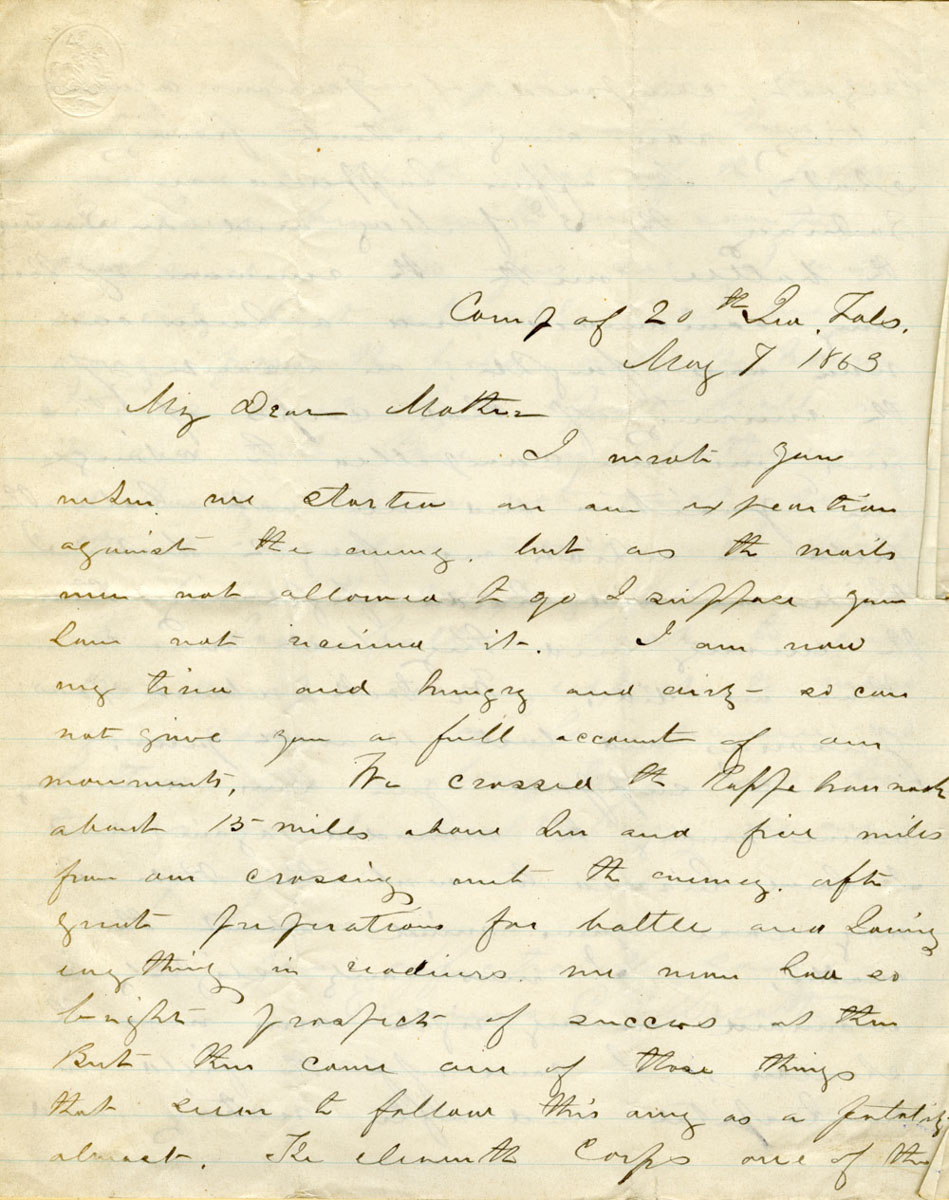 Camp of 20th Ind. Vols.
May 7 1863
My Dear Mother
I wrote you
when we started on our expedition
against the enemy. but as the mails
were not allowed to go I suppose you
have not received it. I am now
very tired and hungry and dirty – so can
not give you a full account of our
movements, We crossed the Rappahannock
about 15 miles above here and five miles
from our crossing met the enemy. after
great preparations for battle and having
everything in readiness. we never had so
bright prospects of success as then
But then came one of those things
that seem to follow this army as a fatality
almost. The eleventh Corps one of the